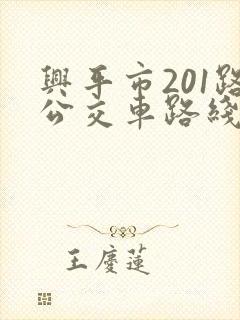 興平市201路
公交車路綫
王慶蓮